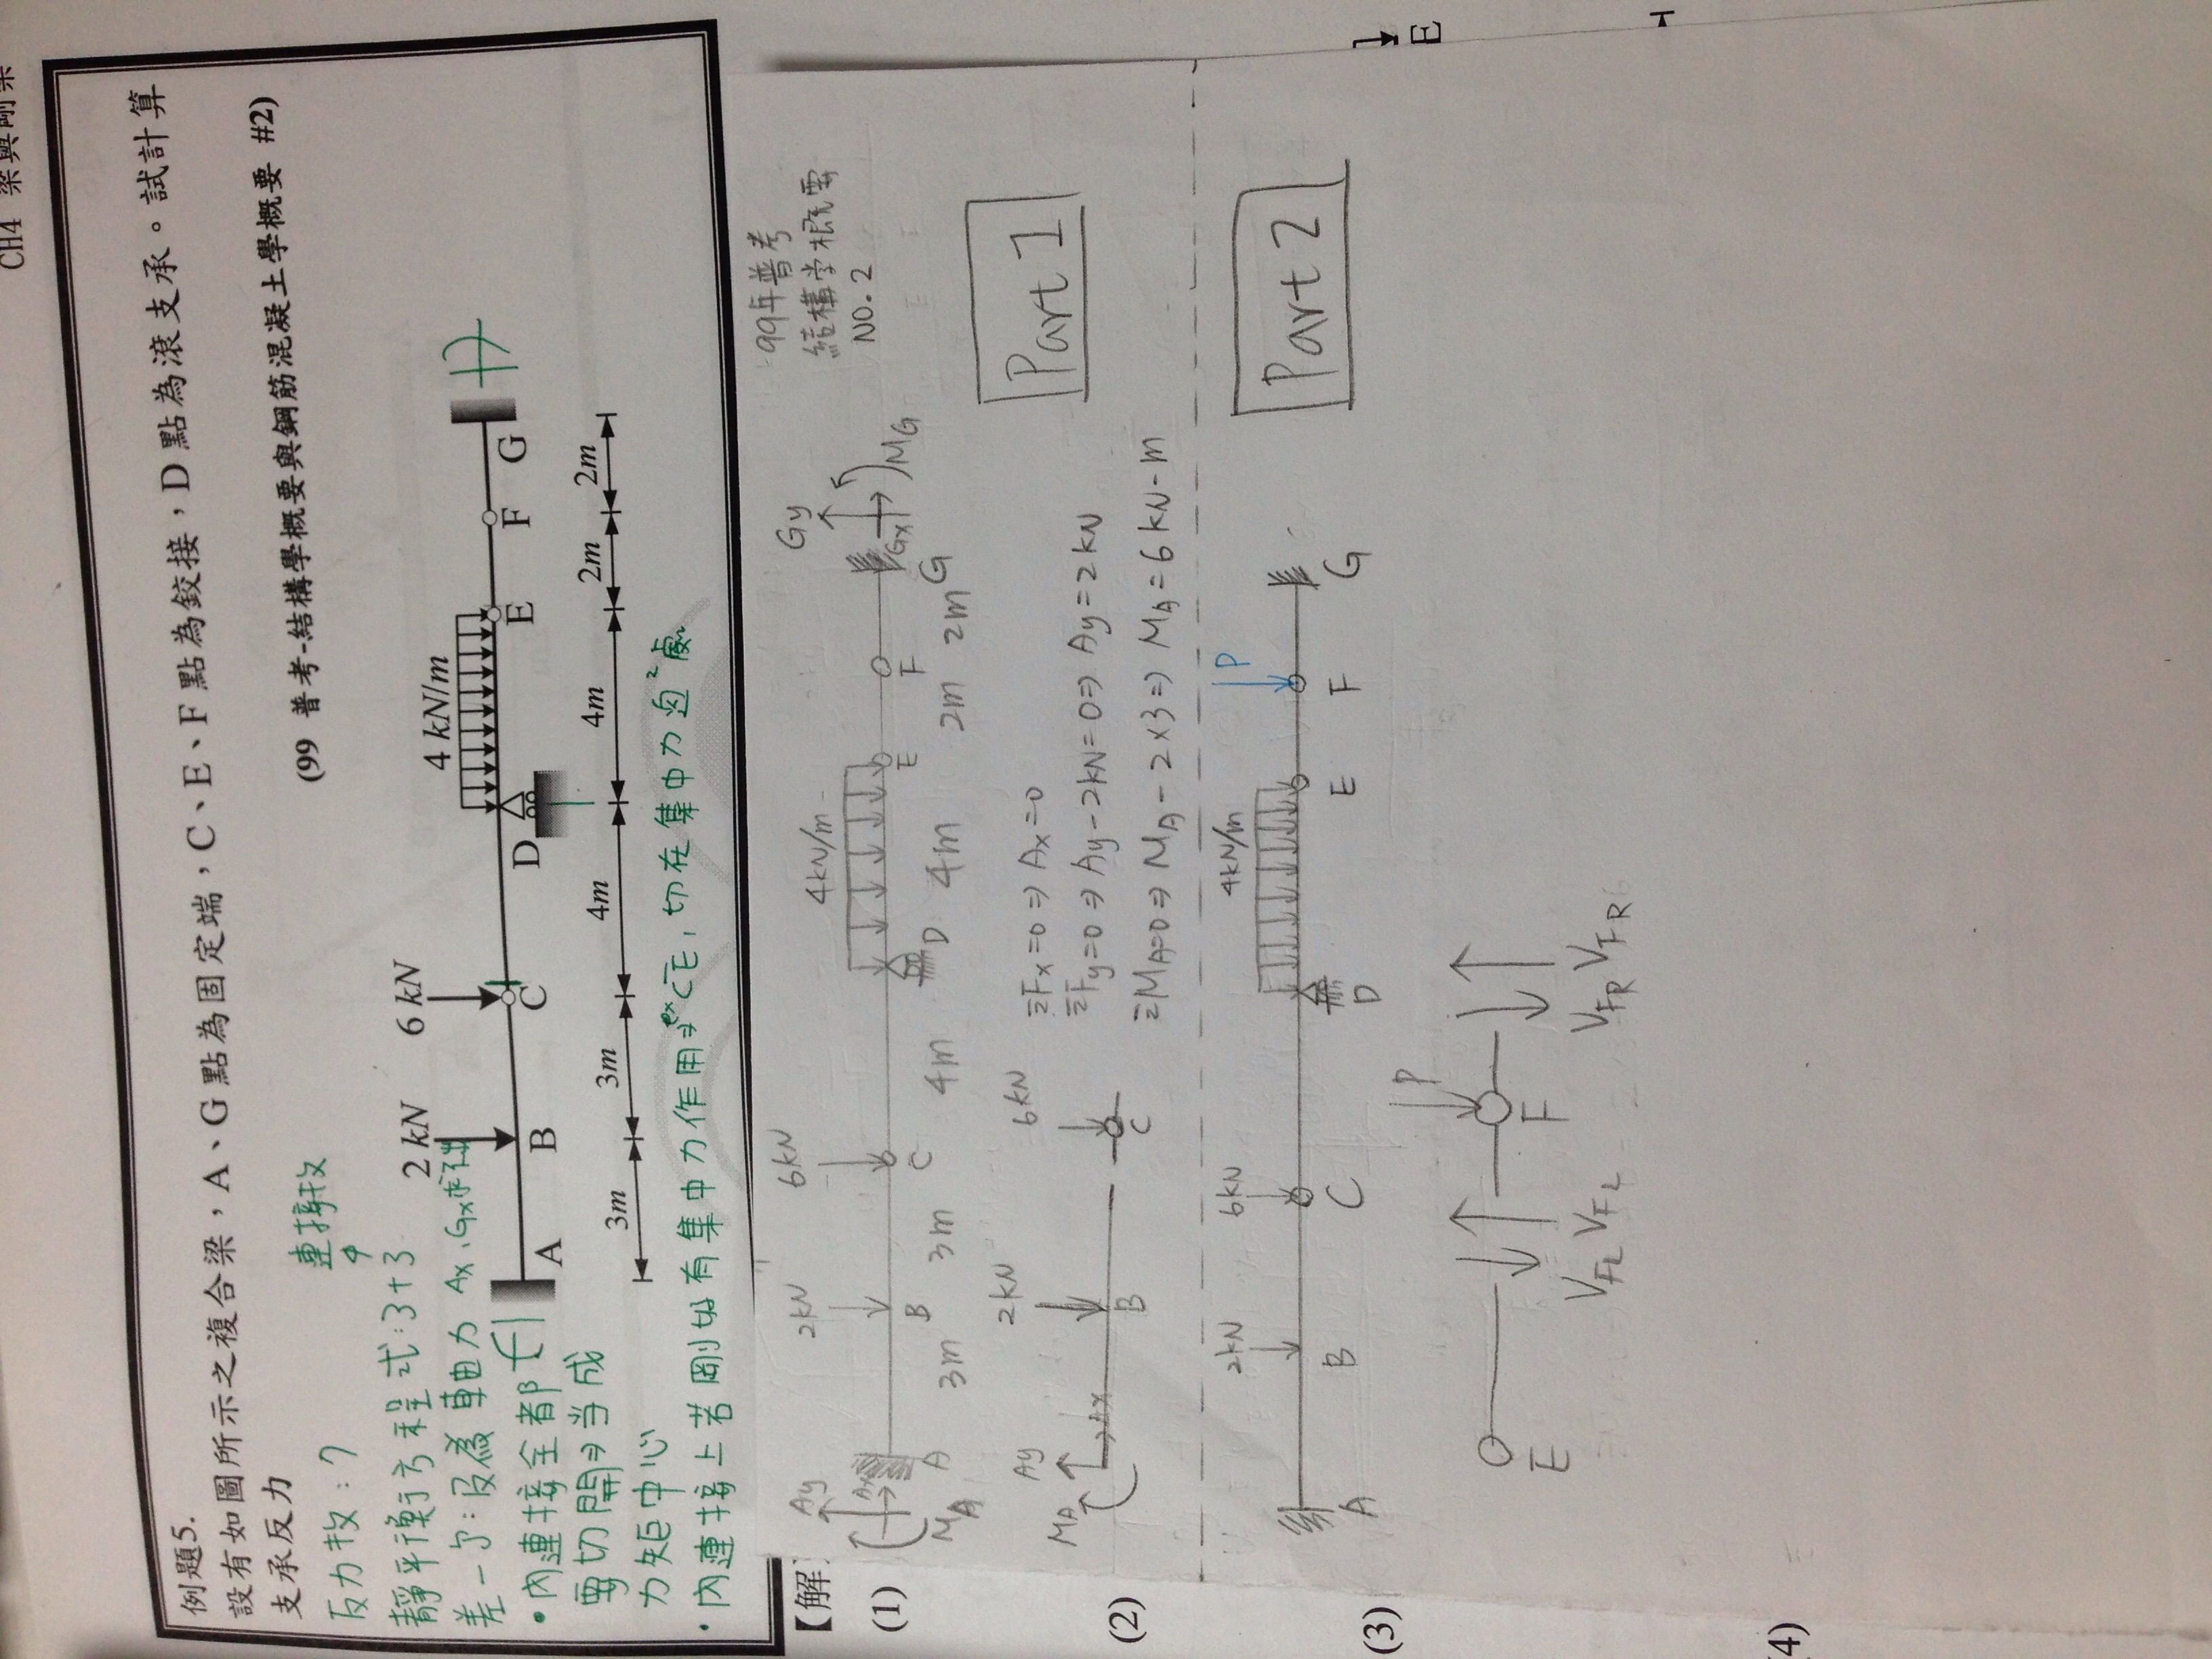 CH4 梁與剛架
例題5.
設有如圖所示之複合梁，A、G點為固定端，C、E、F點為鉸接，D點為滾支承。試計算
支承反力
(99 普考-結構學概要與鋼筋混凝土學概要 #2)
反力數：7
連接數
靜平衡方程式：3+3
差一方：因為軸力 Ax、Gx
2 kN
6 kN
4 kN/m
A
B
C
D
E
F
G
3m
3m
4m
4m
2m
2m
•內連接全部
要切開⇒当成
力矩中心
•內連接上若剛好有集中力作用⇒ CE，切在集中力
99年普考
結構学概要
NO.2
【解
(1)
Ay
Ax
MA
A
2kN
B
6kN
C
D
4kN/m
E
F
G
Gy
Gx
MG
3m
3m
4m
4m
2m
2m
Part 1
(2)
MA
Ay
Ax
2kN
B
6kN
C
ΣFx=0⇒Ax=0
ΣFy=0⇒Ay-2kN=0⇒Ay=2kN
ΣMA=0⇒MA-2×3⇒MA=6kN-m
Part 2
(3)
A
2kN
B
6kN
C
D
4kN/m
E
P
F
G
E
VFL VFL
P
F
VFR VFR
4)
E